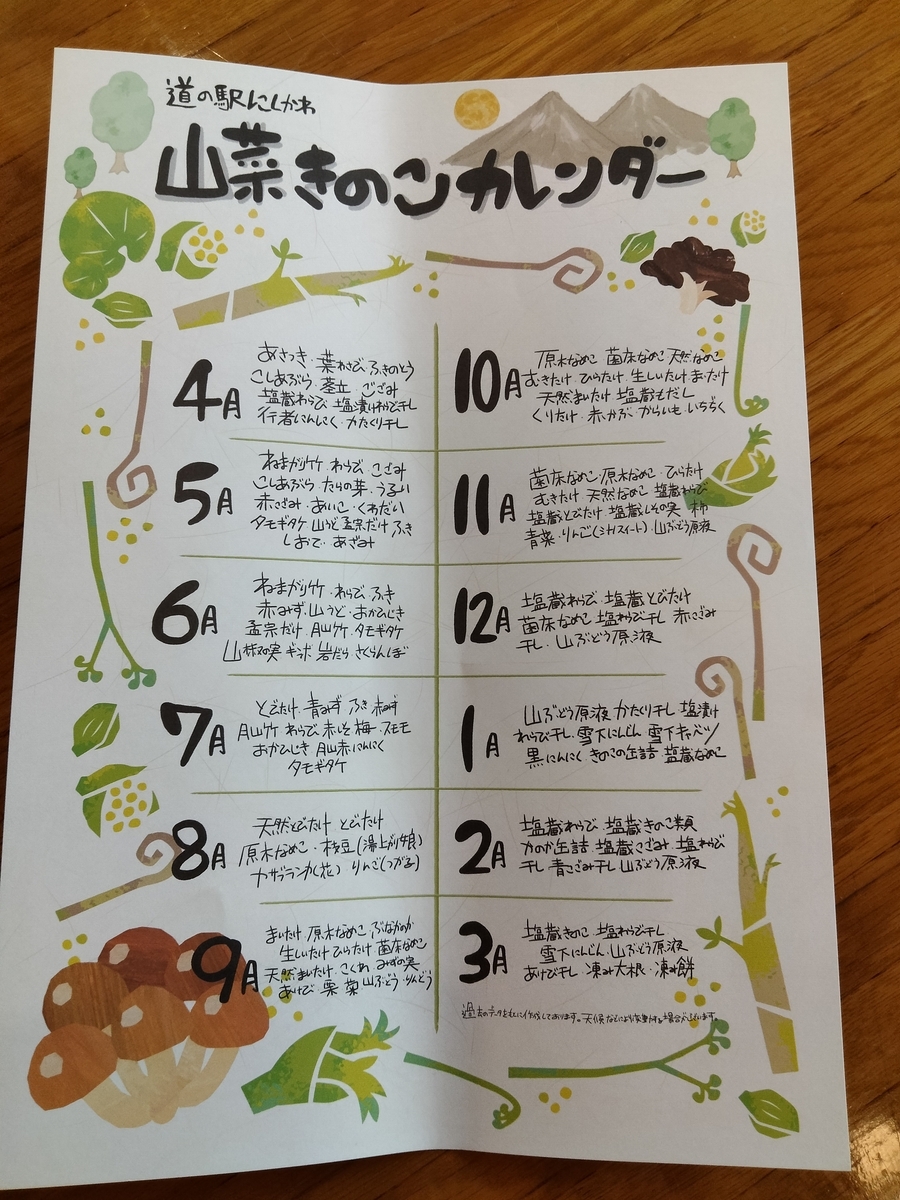 道の駅にしかわ
山菜きのこカレンダー
4月
あさつき・葉わさび・ふきのとう
こしあぶら・茎立・こごみ
塩蔵わらび 塩漬けわらび干し
行者にんにく・かたくり干し
5月
ねまがり竹・わらび・こごみ
こしあぶら・たらの芽・うるい
赤こごみ・あいこ・くわだい
タモギタケ 山うど 孟宗だけ ふき
しおで・あざみ
6月
ねまがり竹・わらび・ふき
赤みず・山うど・おかひじき
孟宗だけ・月山竹・タモギタケ
山椒の実 ギンボ 岩だら・さくらんぼ
7月
とびたけ・青みず ふき 赤みず
月山竹 わらび 赤しそ 梅・スモモ
おかひじき 月山赤にんにく
タモギタケ
8月
天然とびたけ とびたけ
原木なめこ・枝豆(湯上がり娘)
カサブランカ(花) りんご(つがる)
9月
まいたけ・原木なめこ ぶなかのか
生しいたけ ひらたけ 菌床なめこ
天然まいたけ・こくわ みずの実
あけび 栗 菊 山ぶどう りんどう
10月
原木なめこ 菌床なめこ 天然なめこ
むきたけ・ひらたけ・生しいたけ・まいたけ
天然まいたけ 塩蔵もだし
くりたけ・赤かぶ からいも・いちぢく
11月
菌床なめこ・原木なめこ・ひらたけ
むきたけ 天然なめこ 塩蔵わらび
塩蔵とびたけ 塩蔵しその実 柿
青菜・りんご(シナノスイート)・山ぶどう原液
12月
塩蔵わらび 塩蔵とびたけ
菌床なめこ 塩わらび干し 赤こごみ
干し・山ぶどう原液
1月
山ぶどう原液 かたくり干し 塩漬け
わらび干し 雪下にんじん 雪下キャベツ
黒にんにく きのこの缶詰 塩蔵なめこ
2月
塩蔵わらび・塩蔵きのこ類
かのか缶詰 塩蔵こごみ 塩わらび
干し 青こごみ干し 山ぶどう原液
3月
塩蔵きのこ 塩わらび干し
雪下にんじん・山ぶどう原液
あけび干し 凍み大根・凍み餅
過去のデータをもとに作成しております。天候などにより変動する場合がございます。